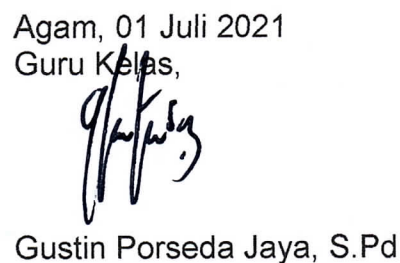 Agam, 01 Juli 2021
Guru Kelas,
Gustin Porseda Jaya, S.Pd